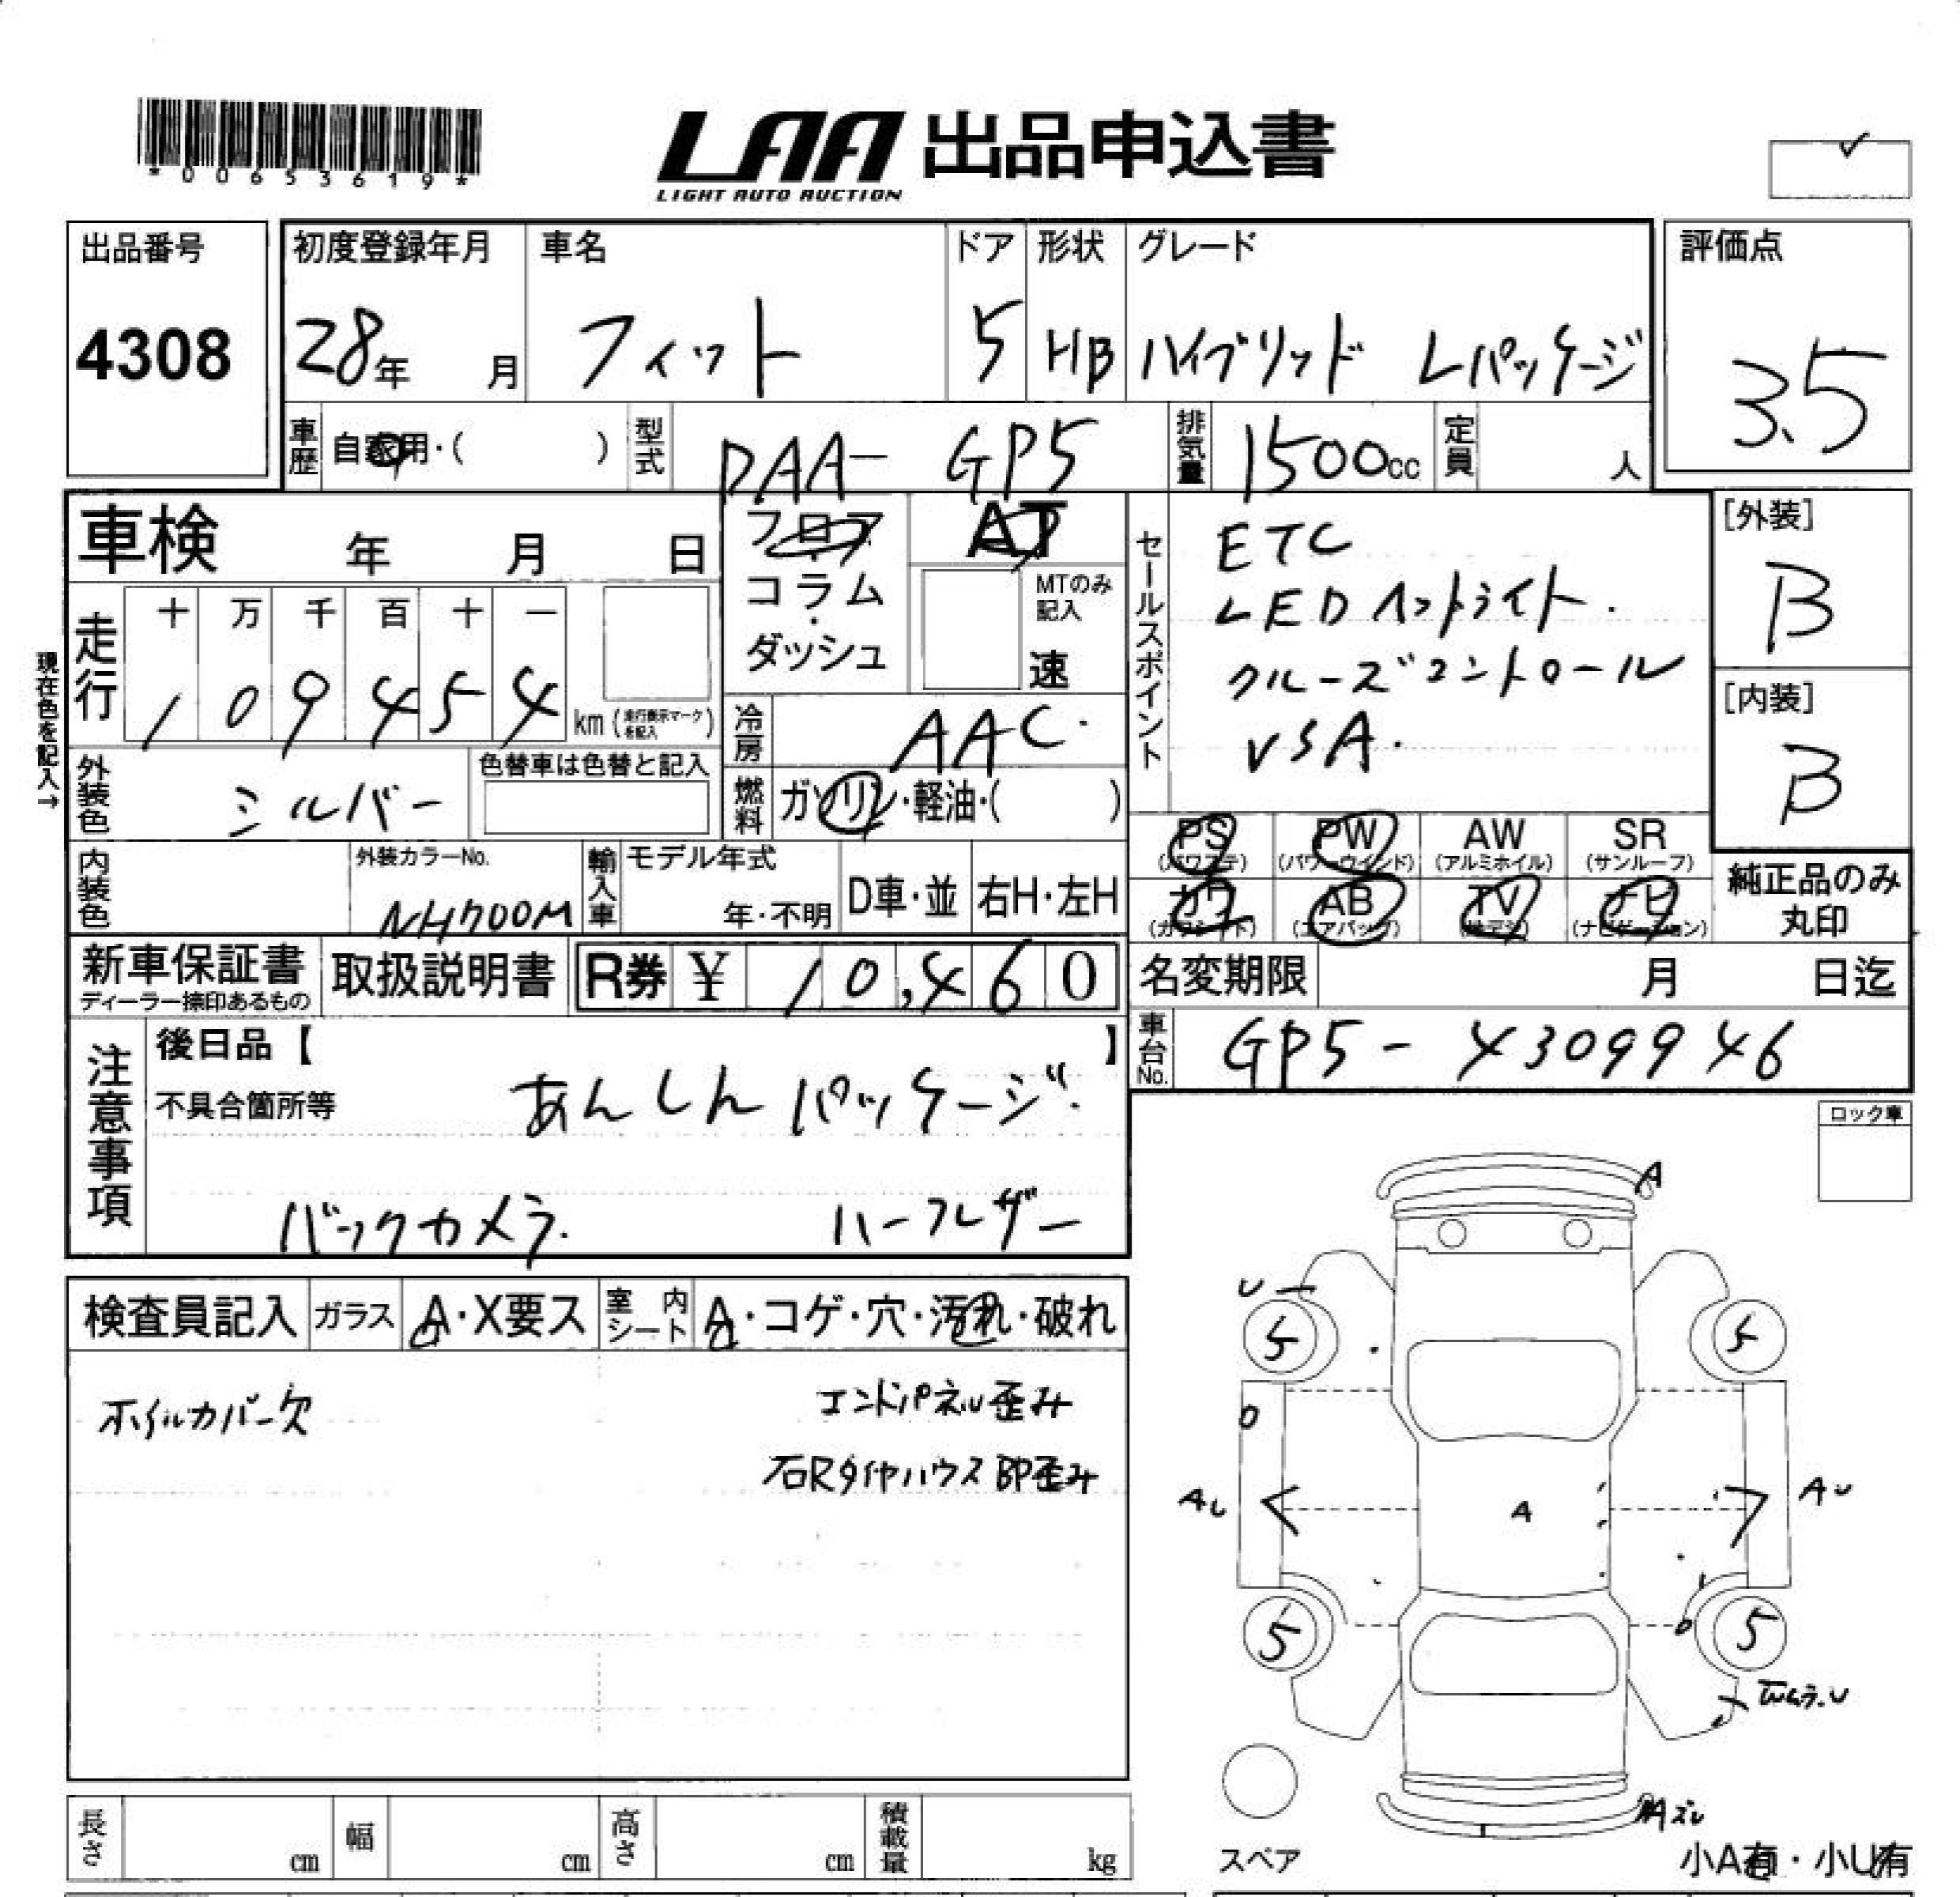 *00653619*
LAA 出品申込書
LIGHT AUTO AUCTION
出品番号
4308
初度登録年月
28年 月
車名
フィット
ドア
5
形状
HB
グレード
ハイブリッド Lパッケージ
評価点
3.5
車歴 自家用・( )
型式 DAA- GP5
排気量 1500cc
定員 人
車検 年 月 日
フロア・コラム・ダッシュ
AT
MTのみ記入
速
セールスポイント
ETC
LEDヘッドライト.
クルーズコントロール
VSA.
[外装]
B
[内装]
B
現在色を記入→
走行
十 万 千 百 十 一
1 0 9 4 5 4 km (走行表示マークを記入)
冷房 AAC.
外装色 シルバー
色替車は色替と記入
燃料 ガソリン・軽油・( )
PS (パワステ) PW (パワーウインド) AW (アルミホイル) SR (サンルーフ)
カワ (カワシート) AB (エアバッグ) TV (地デジ) ナビ (ナビゲーション)
純正品のみ丸印
内装色
外装カラーNo.
NH700M
輸入車
モデル年式
年・不明
D車・並
右H・左H
新車保証書
ディーラー捺印あるもの
取扱説明書
R券 ¥ 10,460
名変期限 月 日迄
車台No. GP5- 4309946
注意事項
後日品【 】
不具合箇所等
あんしんパッケージ.
バックカメラ. ハーフレザー
ロック車
検査員記入
ガラス A・X要ス
室内シート A・コゲ・穴・汚れ・破れ
ホイルカバー欠
エンドパネル歪み
右Rタイヤハウス BP歪み
A
U
5
5
O
AU
A
AU
5
5
O
スペア
小A有・小U有
長さ cm
幅 cm
高さ cm
積載量 kg